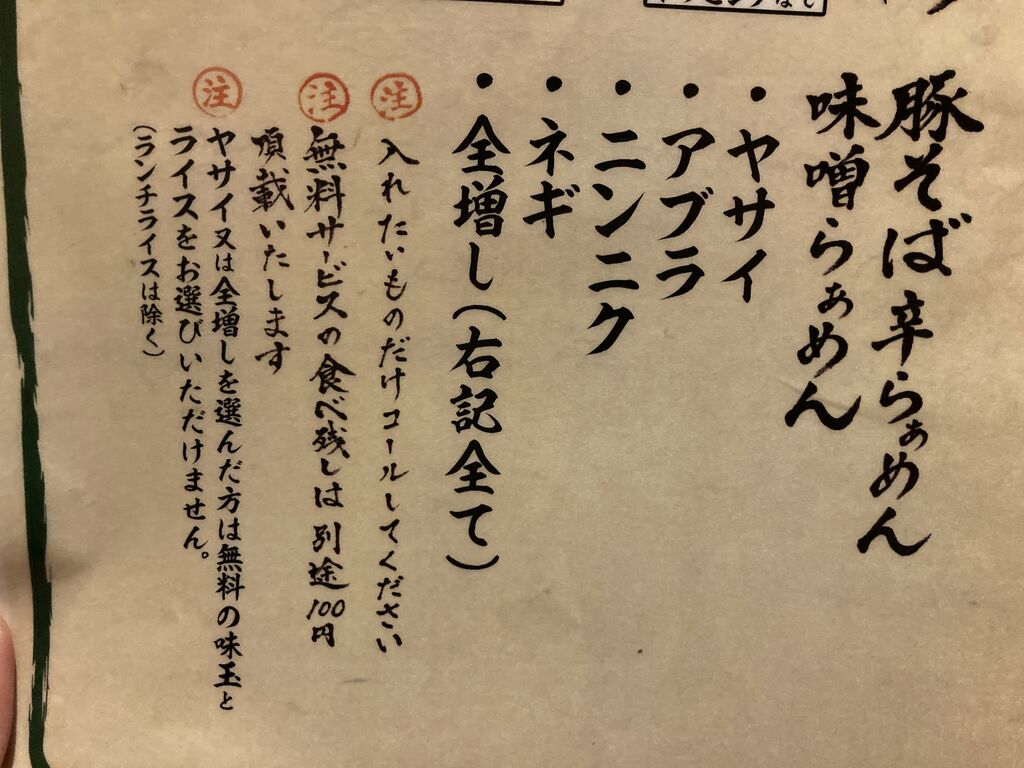 豚そば辛らぁめん
味噌らぁめん
・ヤサイ
・アブラ
・ニンニク
・ネギ
・全増し(右記全て)
注 入れたいものだけコールしてください
注 無料サービスの食べ残しは別途100円
頂載いたします
注 ヤサイ又は全増しを選んだ方は無料の味玉と
ライスをお選びいただけません。
(ランチライスは除く)